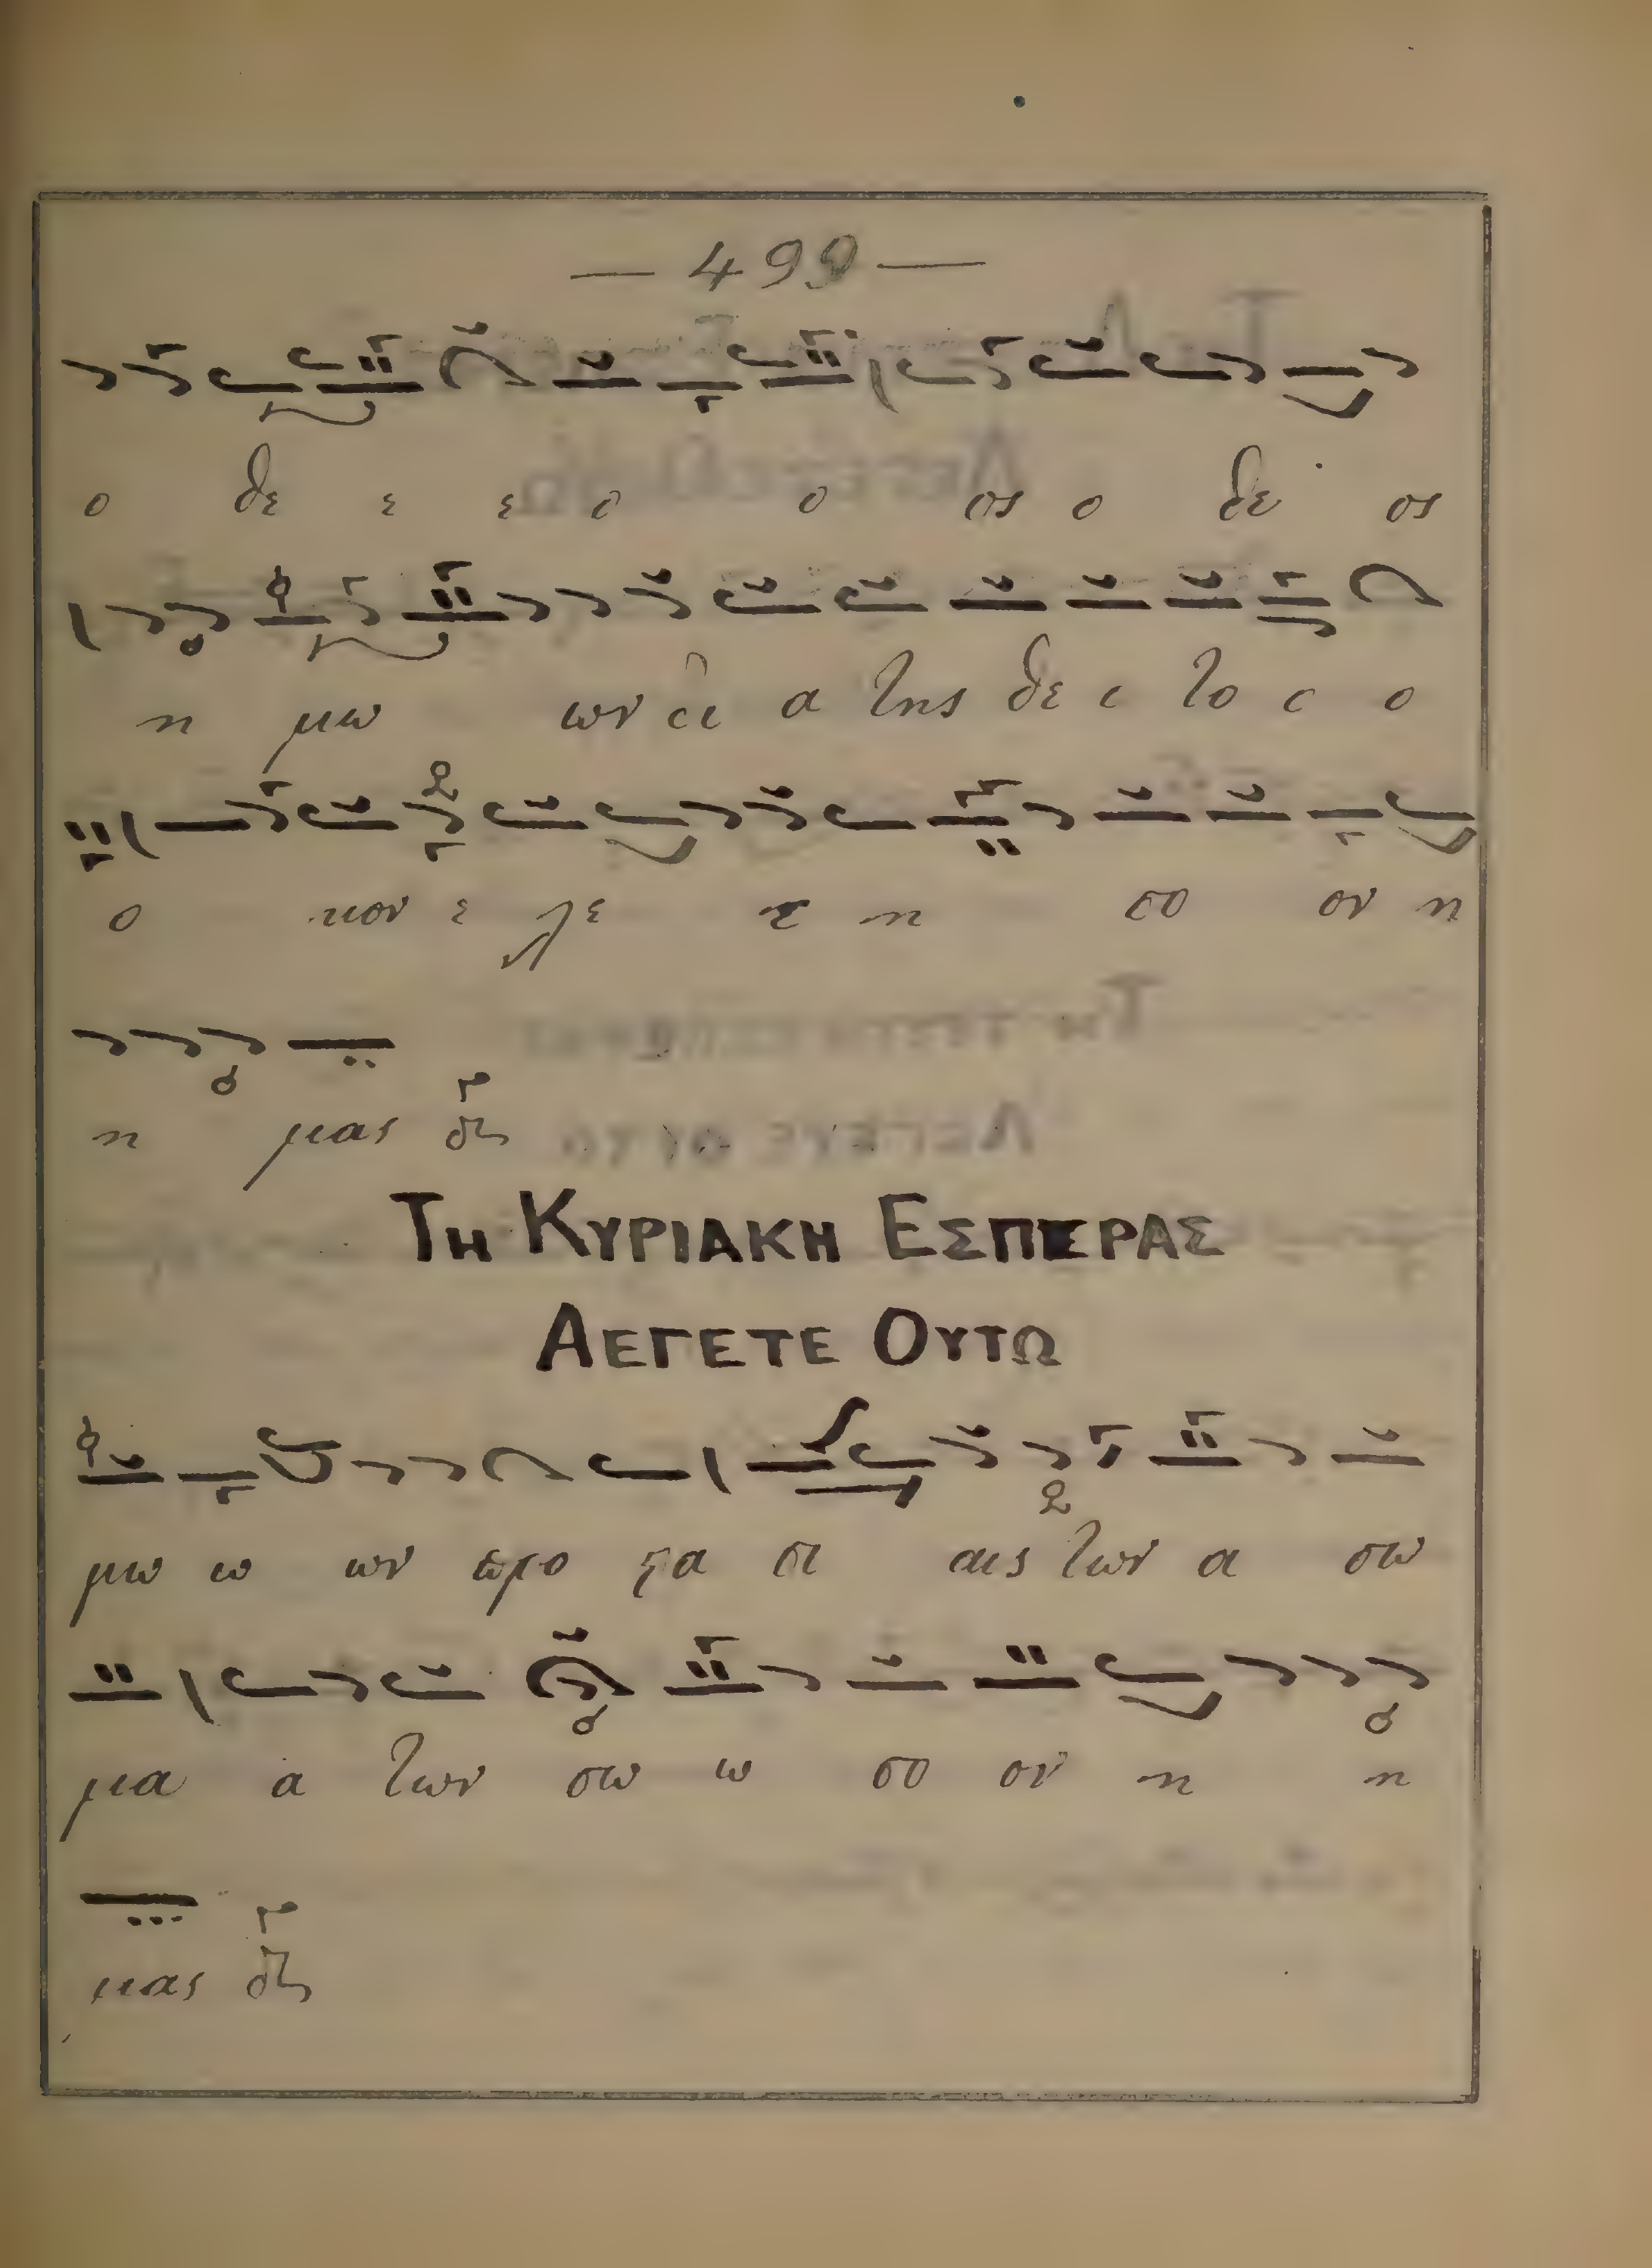 — 499 —
ο θε ε ε ο ο ος ο θε ος
η μω ων δι α της θε ο το ο ο
ο κου ε λε ε η σο ον η
η μας
Τη Κυριακη Εσπερας
Λεγετε Ουτω
μω ω ων προ στα σι αις των α σω
μα α των σω ω σο ον η η
μας